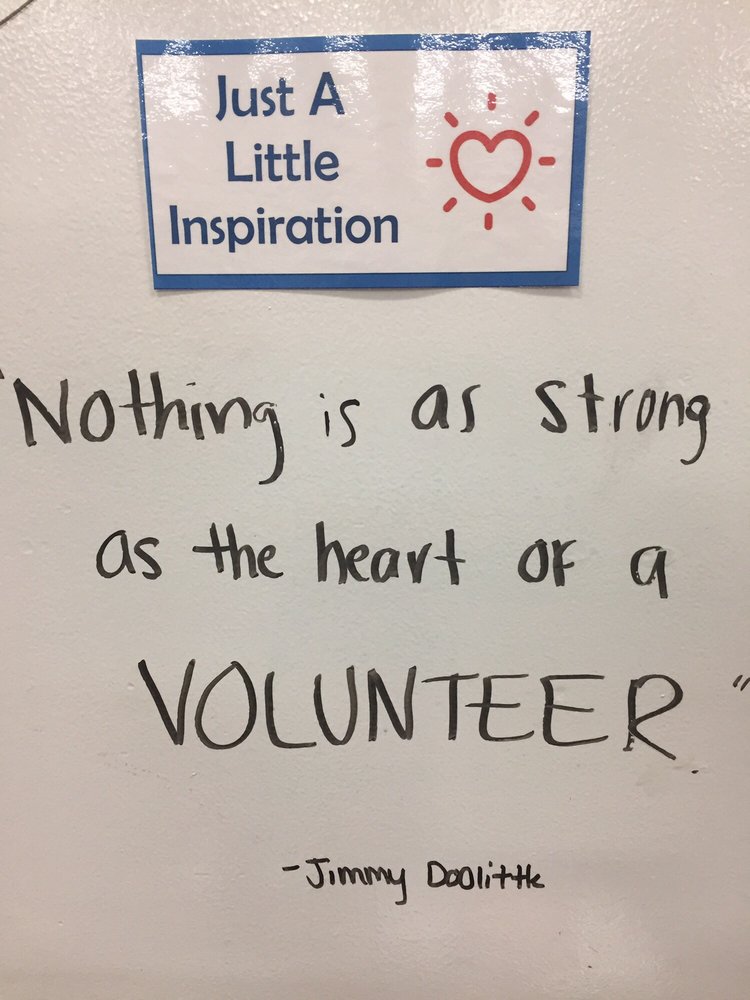 Just A
Little
Inspiration
"Nothing is as strong
as the heart of a
VOLUNTEER."
-Jimmy Doolittle